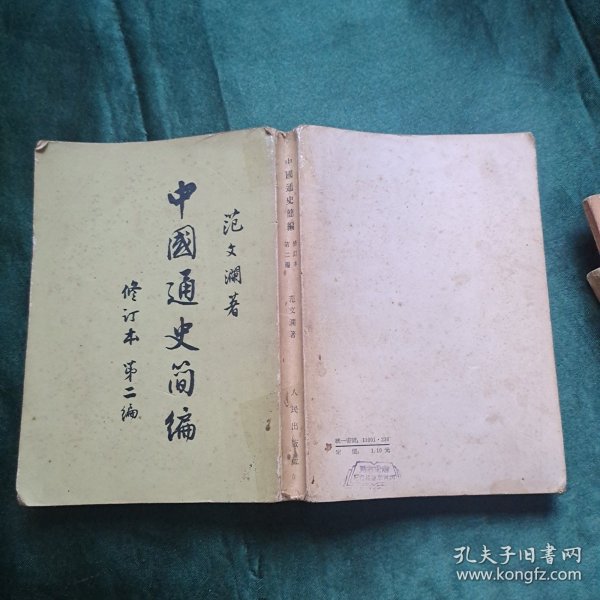 范文澜著
中國通史简编
修订本 第二编
中國通史簡編
修訂本
第二編
范文瀾著
人民出版社
統一書號：11001·226
定 價： 1.10 元
孔夫子旧书网
www.kongfz.com